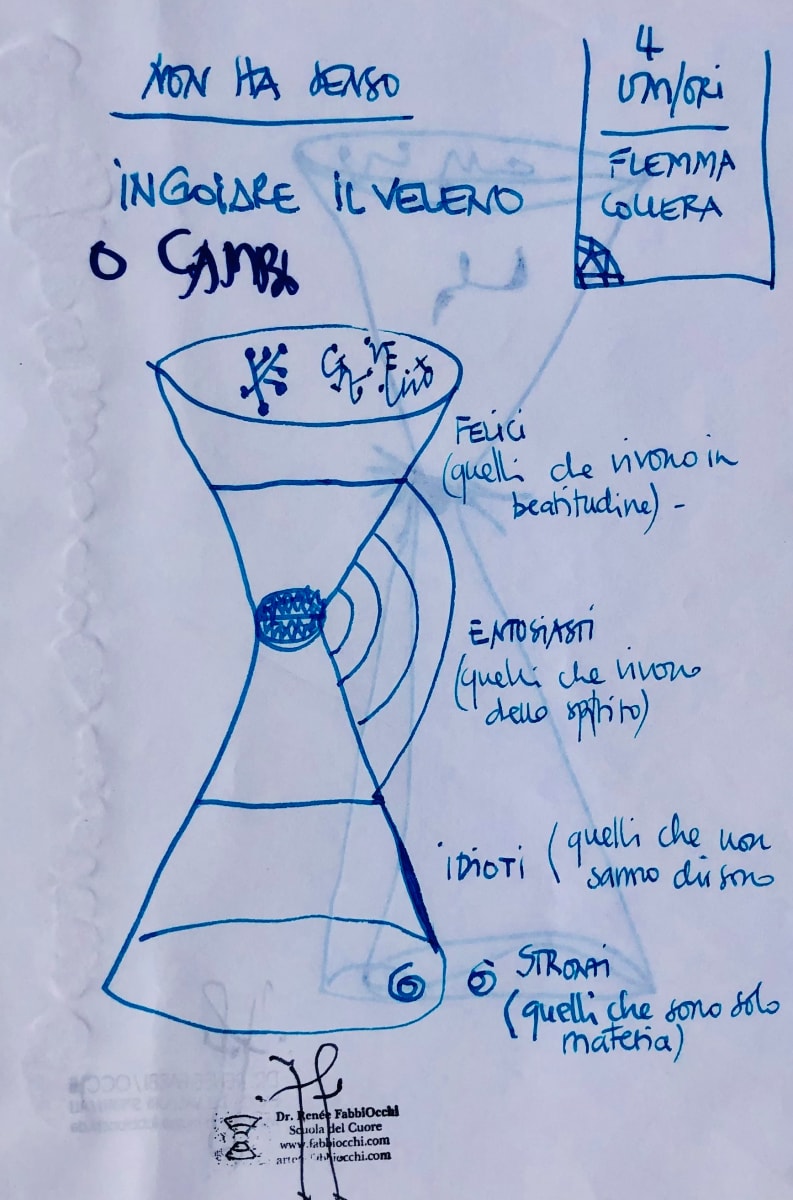 NON HA SENSO
4
UMORI
FLEMMA
COLLERA
INGOIARE IL VELENO
O CAMBI
FELICI
(quelli che vivono in
beatitudine) -
ENTOSIASTI
(quelli che vivono
dello spirito)
IDIOTI (quelli che non
sanno chi sono
6 6 STRONZI
(quelli che sono solo
materia)
Dr. Renée FabbiOcchi
Scuola del Cuore
www.fabbiocchi.com